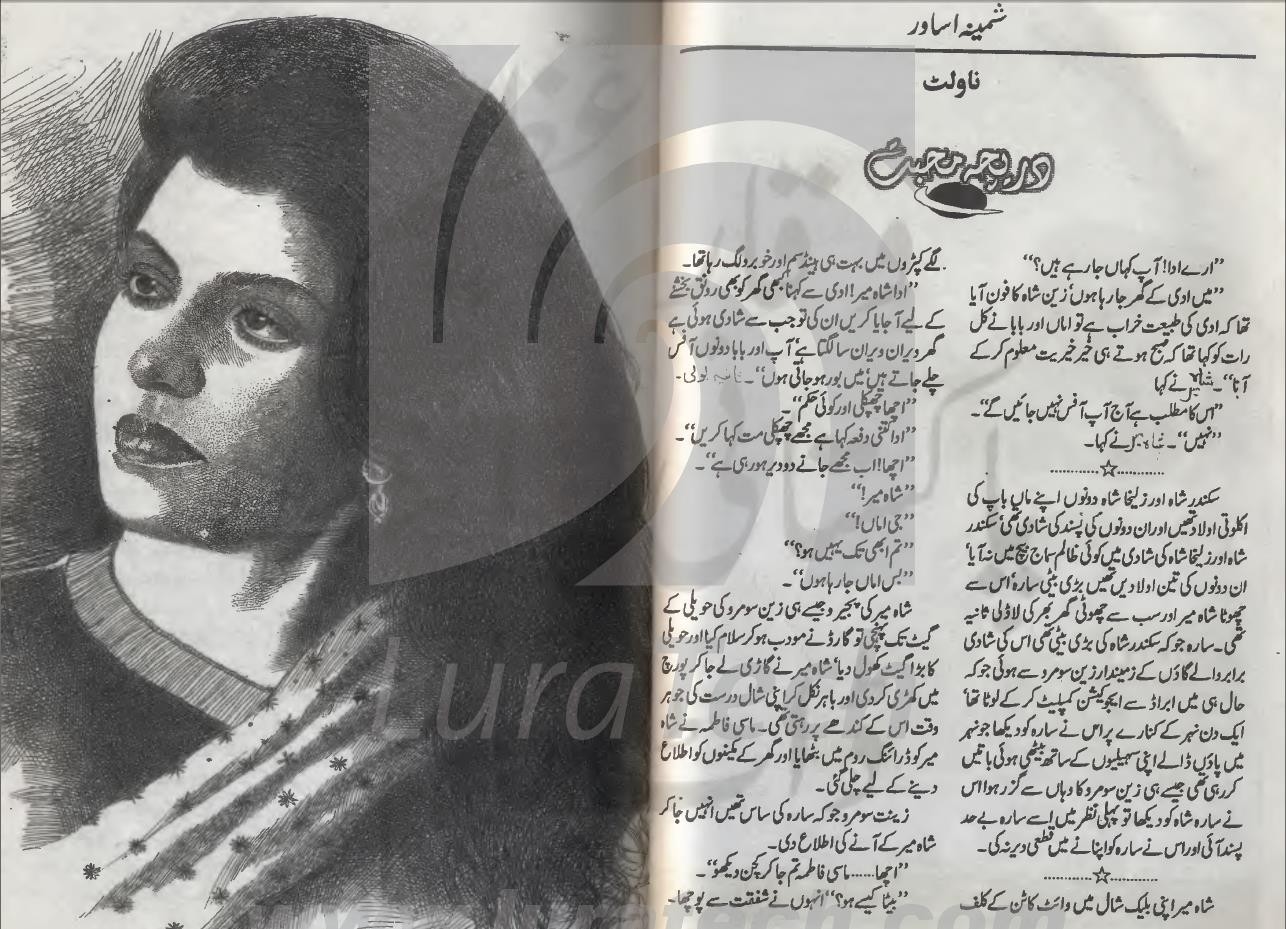 شمینہ اساور
ناولٹ
دریچہ محبت
”ارے ادا! آپ کہاں جا رہے ہیں؟“
”میں ادی کے گھر جا رہا ہوں‘ زین شاہ کا فون آیا
تھا کہ ادی کی طبیعت خراب ہے تو اماں اور بابا نے کل
رات کو کہا تھا کہ صبح ہوتے ہی خیر خیریت معلوم کر کے
آنا“۔ نے کہا
”اس کا مطلب ہے آج آپ آفس نہیں جائیں گے“۔
”نہیں“۔ نے کہا۔
............☆............
سکندر شاہ اور زلیخا شاہ دونوں اپنے ماں باپ کی
اکلوتی اولاد تھیں اور ان دونوں کی پسند کی شادی تھی‘ سکندر
شاہ اور زلیخا شاہ کی شادی میں کوئی ظالم سماج بیچ میں نہ آیا‘
ان دونوں کی تین اولادیں تھیں بڑی بیٹی سارہ‘ اس سے
چھوٹا شاہ میر اور سب سے چھوٹی گھر بھر کی لاڈلی ثانیہ
تھی۔ سارہ جو کہ سکندر شاہ کی بڑی بیٹی تھی اس کی شادی
برابر والے گاؤں کے زمیندار زین سومرو سے ہوئی جو کہ
حال ہی میں ابراڈ سے ایجوکیشن کمپلیٹ کر کے لوٹا تھا‘
ایک دن نہر کے کنارے پر اس نے سارہ کو دیکھا جو نہر
میں پاؤں ڈالے اپنی سہیلیوں کے ساتھ بیٹھی ہوئی باتیں
کر رہی تھی جیسے ہی زین سومرو کا وہاں سے گزر ہوا اس
نے سارہ شاہ کو دیکھا تو پہلی نظر میں اسے سارہ بے حد
پسند آئی اور اس نے سارہ کو اپنانے میں قطعی دیر نہ کی۔
............☆............
شاہ میر اپنی بلیک شال میں وائٹ کاٹن کے کلف
لگے کپڑوں میں بہت ہی ہینڈسم اور خوبرو لگ رہا تھا۔
”ادا شاہ میر! ادی سے کہنا کبھی گھر کو بھی رونق بخشنے
کے لیے آ جایا کریں ان کی تو جب سے شادی ہوئی ہے
گھر ویران ویران سا لگتا ہے‘ آپ اور بابا دونوں آفس
چلے جاتے ہیں‘ میں بور ہو جاتی ہوں“۔ ثانیہ بولی۔
”اچھا چھپکلی اور کوئی حکم“۔
”ادا کتنی دفعہ کہا ہے مجھے چھپکلی مت کہا کریں“۔
”اچھا! اب مجھے جانے دو دیر ہو رہی ہے“۔
”شاہ میر!“
”جی اماں!“
”تم ابھی تک یہیں ہو؟“
”بس اماں جا رہا ہوں“۔
شاہ میر کی پجیرو جیسے ہی زین سومرو کی حویلی کے
گیٹ تک پہنچی تو گارڈ نے مودب ہو کر سلام کیا اور حویلی
کا بڑا گیٹ کھول دیا‘ شاہ میر نے گاڑی لے جا کر پورچ
میں کھڑی کر دی اور باہر نکل کر اپنی شال درست کی جو ہر
وقت اس کے کندھے پر رہتی تھی۔ ماسی فاطمہ نے شاہ
میر کو ڈرائنگ روم میں بٹھایا اور گھر کے مکینوں کو اطلاع
دینے کے لیے چلی گئی۔
زینت سومرو جو کہ سارہ کی ساس تھیں انہیں جا کر
شاہ میر کے آنے کی اطلاع دی۔
”اچھا...... ماسی فاطمہ تم جا کر کچن دیکھو“۔
”بیٹا کیسے ہو؟“ انہوں نے شفقت سے پوچھا۔